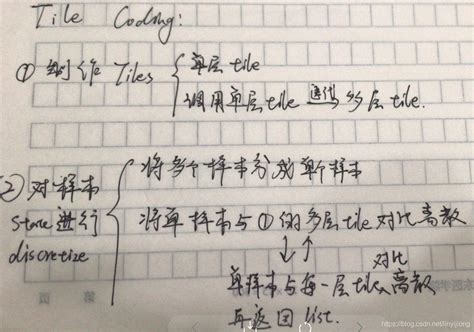 Tile Coding:
① 制作 Tiles { 单层tile
调用单层tile 迭代→ 多层tile.
② 对样本 state 进行 discretize { 将多个样本分成单个样本
将单样本与①的多层tile对比离散
↓↑
单样本与每一层tile对比离散
再返回 list.
https://blog.csdn.net/